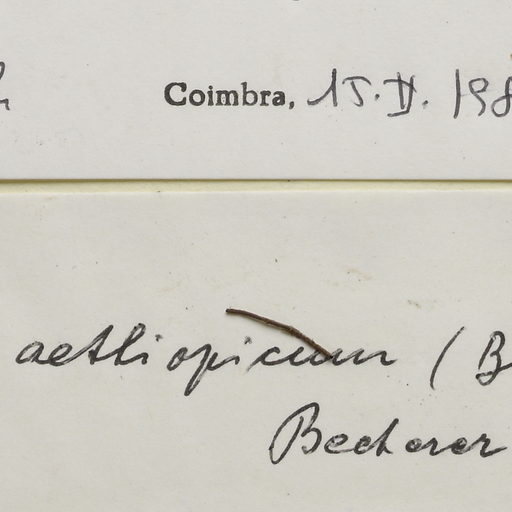 Coimbra, 15.II.198
aethiopicum (B
Becherer